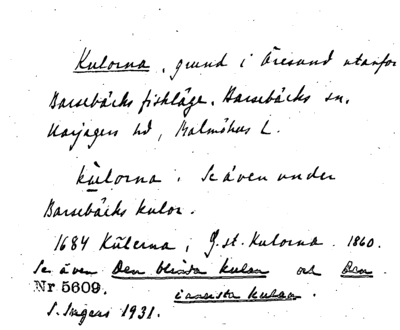 Kulorna, grund i Öresund utanför
Barsebäcks fiskläge. Barsebäcks sn.
Harjagers hd, Malmöhus L.
kūlorna. Se även under
Barsebäcks kulor.
1684 Kūlerna; G.st. Kulorna. 1860.
Se även Den blinda kulan och Den
Nr 5609. kulan.
S. Ingers 1931.